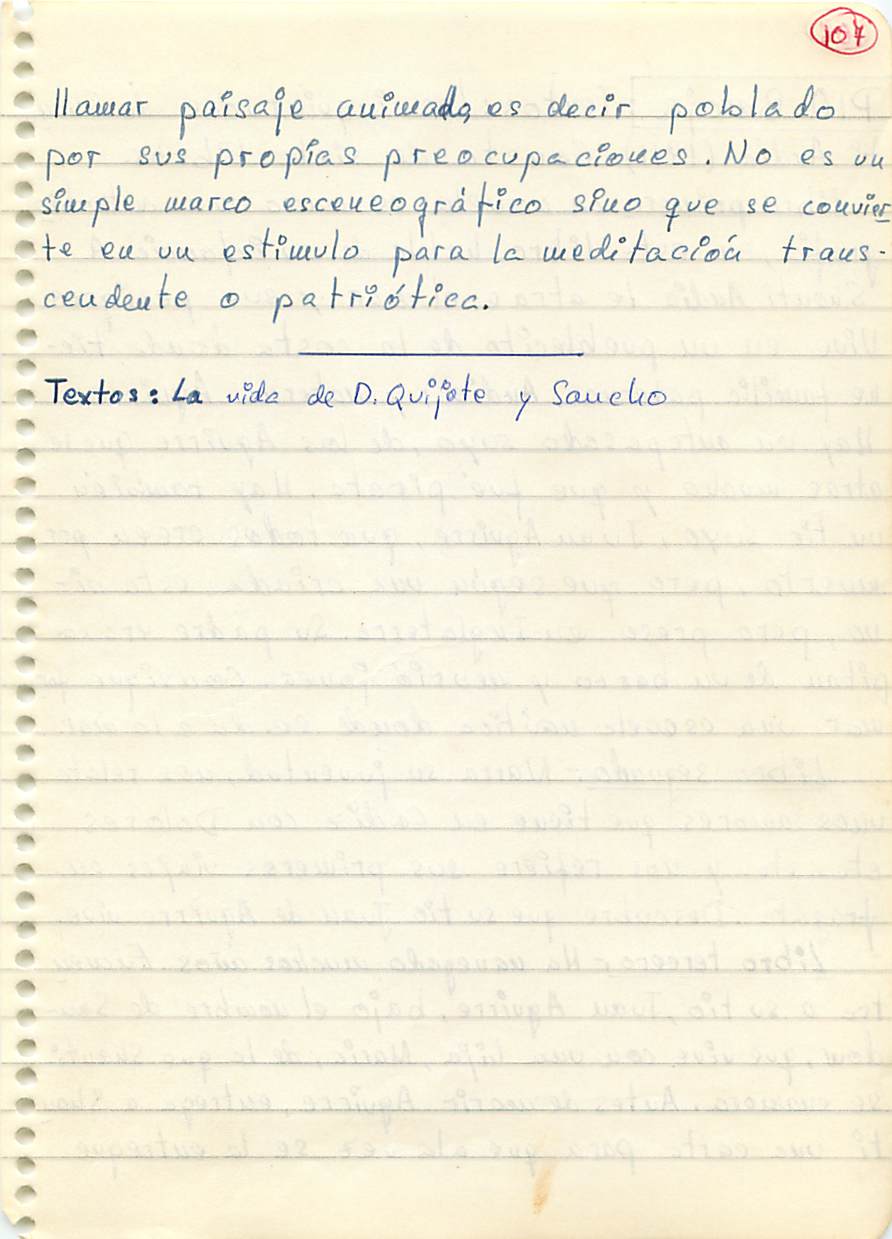 107
llamar paisaje animado, es decir poblado
por sus propias preocupaciones. No es un
simple marco esceneográfico sino que se convier
te en un estímulo para la meditación trans-
cendente o patriótica.
Textos: La vida de D. Quijote y Sancho